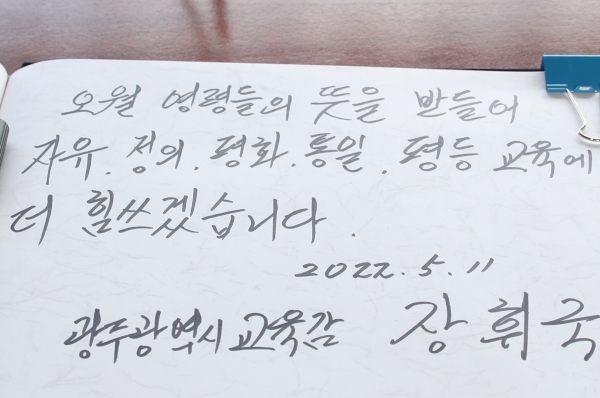 오월 영령들의 뜻을 받들어
자유. 정의. 평화. 통일. 평등 교육에
더 힘쓰겠습니다.
2022. 5. 11
광주광역시교육감 장휘국